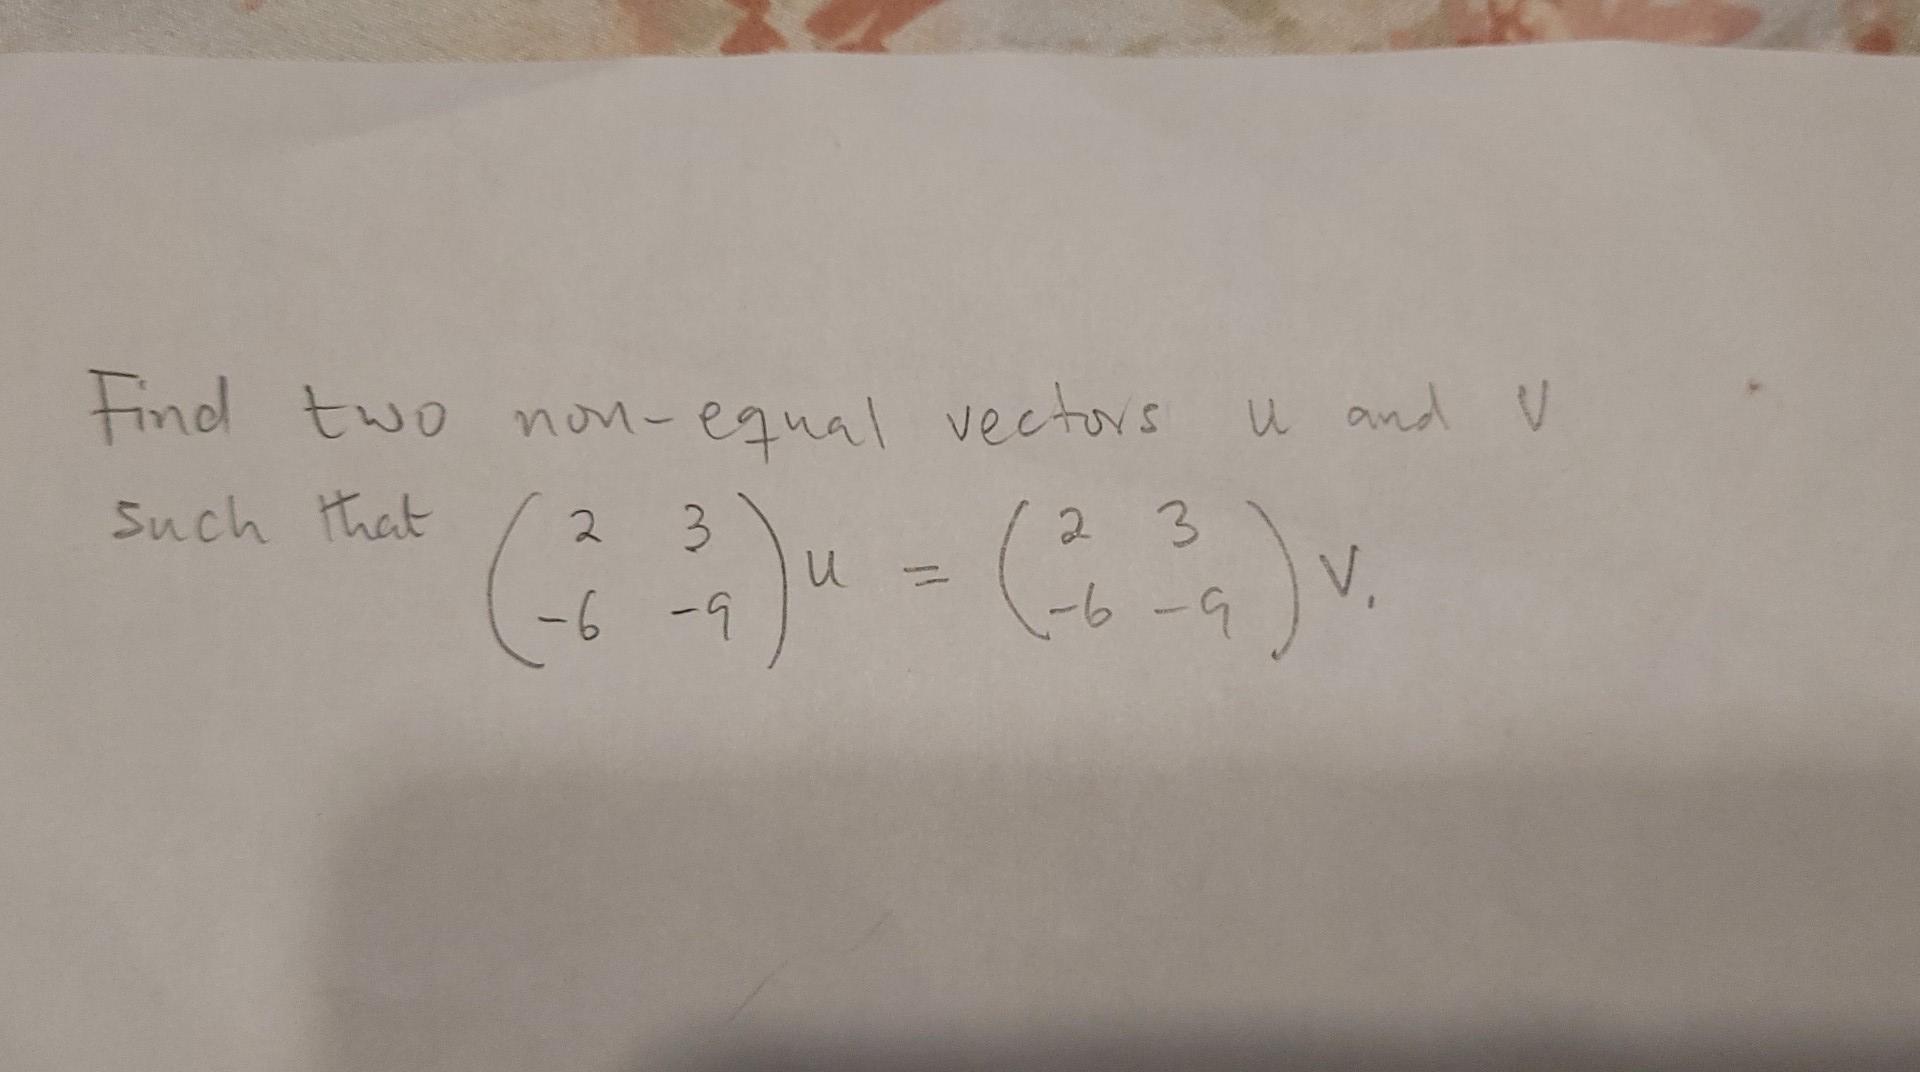 Find two non-equal vectors u and v
such that (2 3
-6 -9) u = (2 3
-6 -9) v.